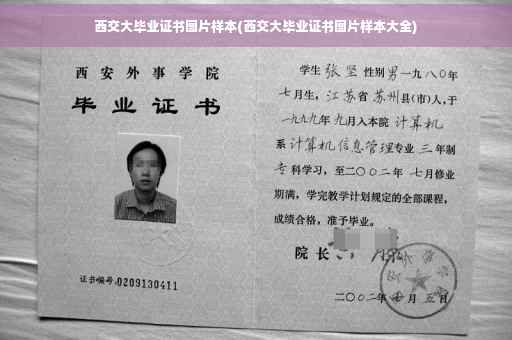 西交大毕业证书图片样本(西交大毕业证书图片样本大全)
西安外事学院
毕业证书
证书编号:0209130411
学生 张坚 性别 男 一九八〇年
七月生，江苏省苏州县(市)人，于
一九九九年九月入本院 计算机
系 计算机信息管理 专业 三 年制
专科学习，至二〇〇二年 七月修业
期满，学完教学计划规定的全部课程，
成绩合格，准予毕业。
院长
二〇〇二年 月五日